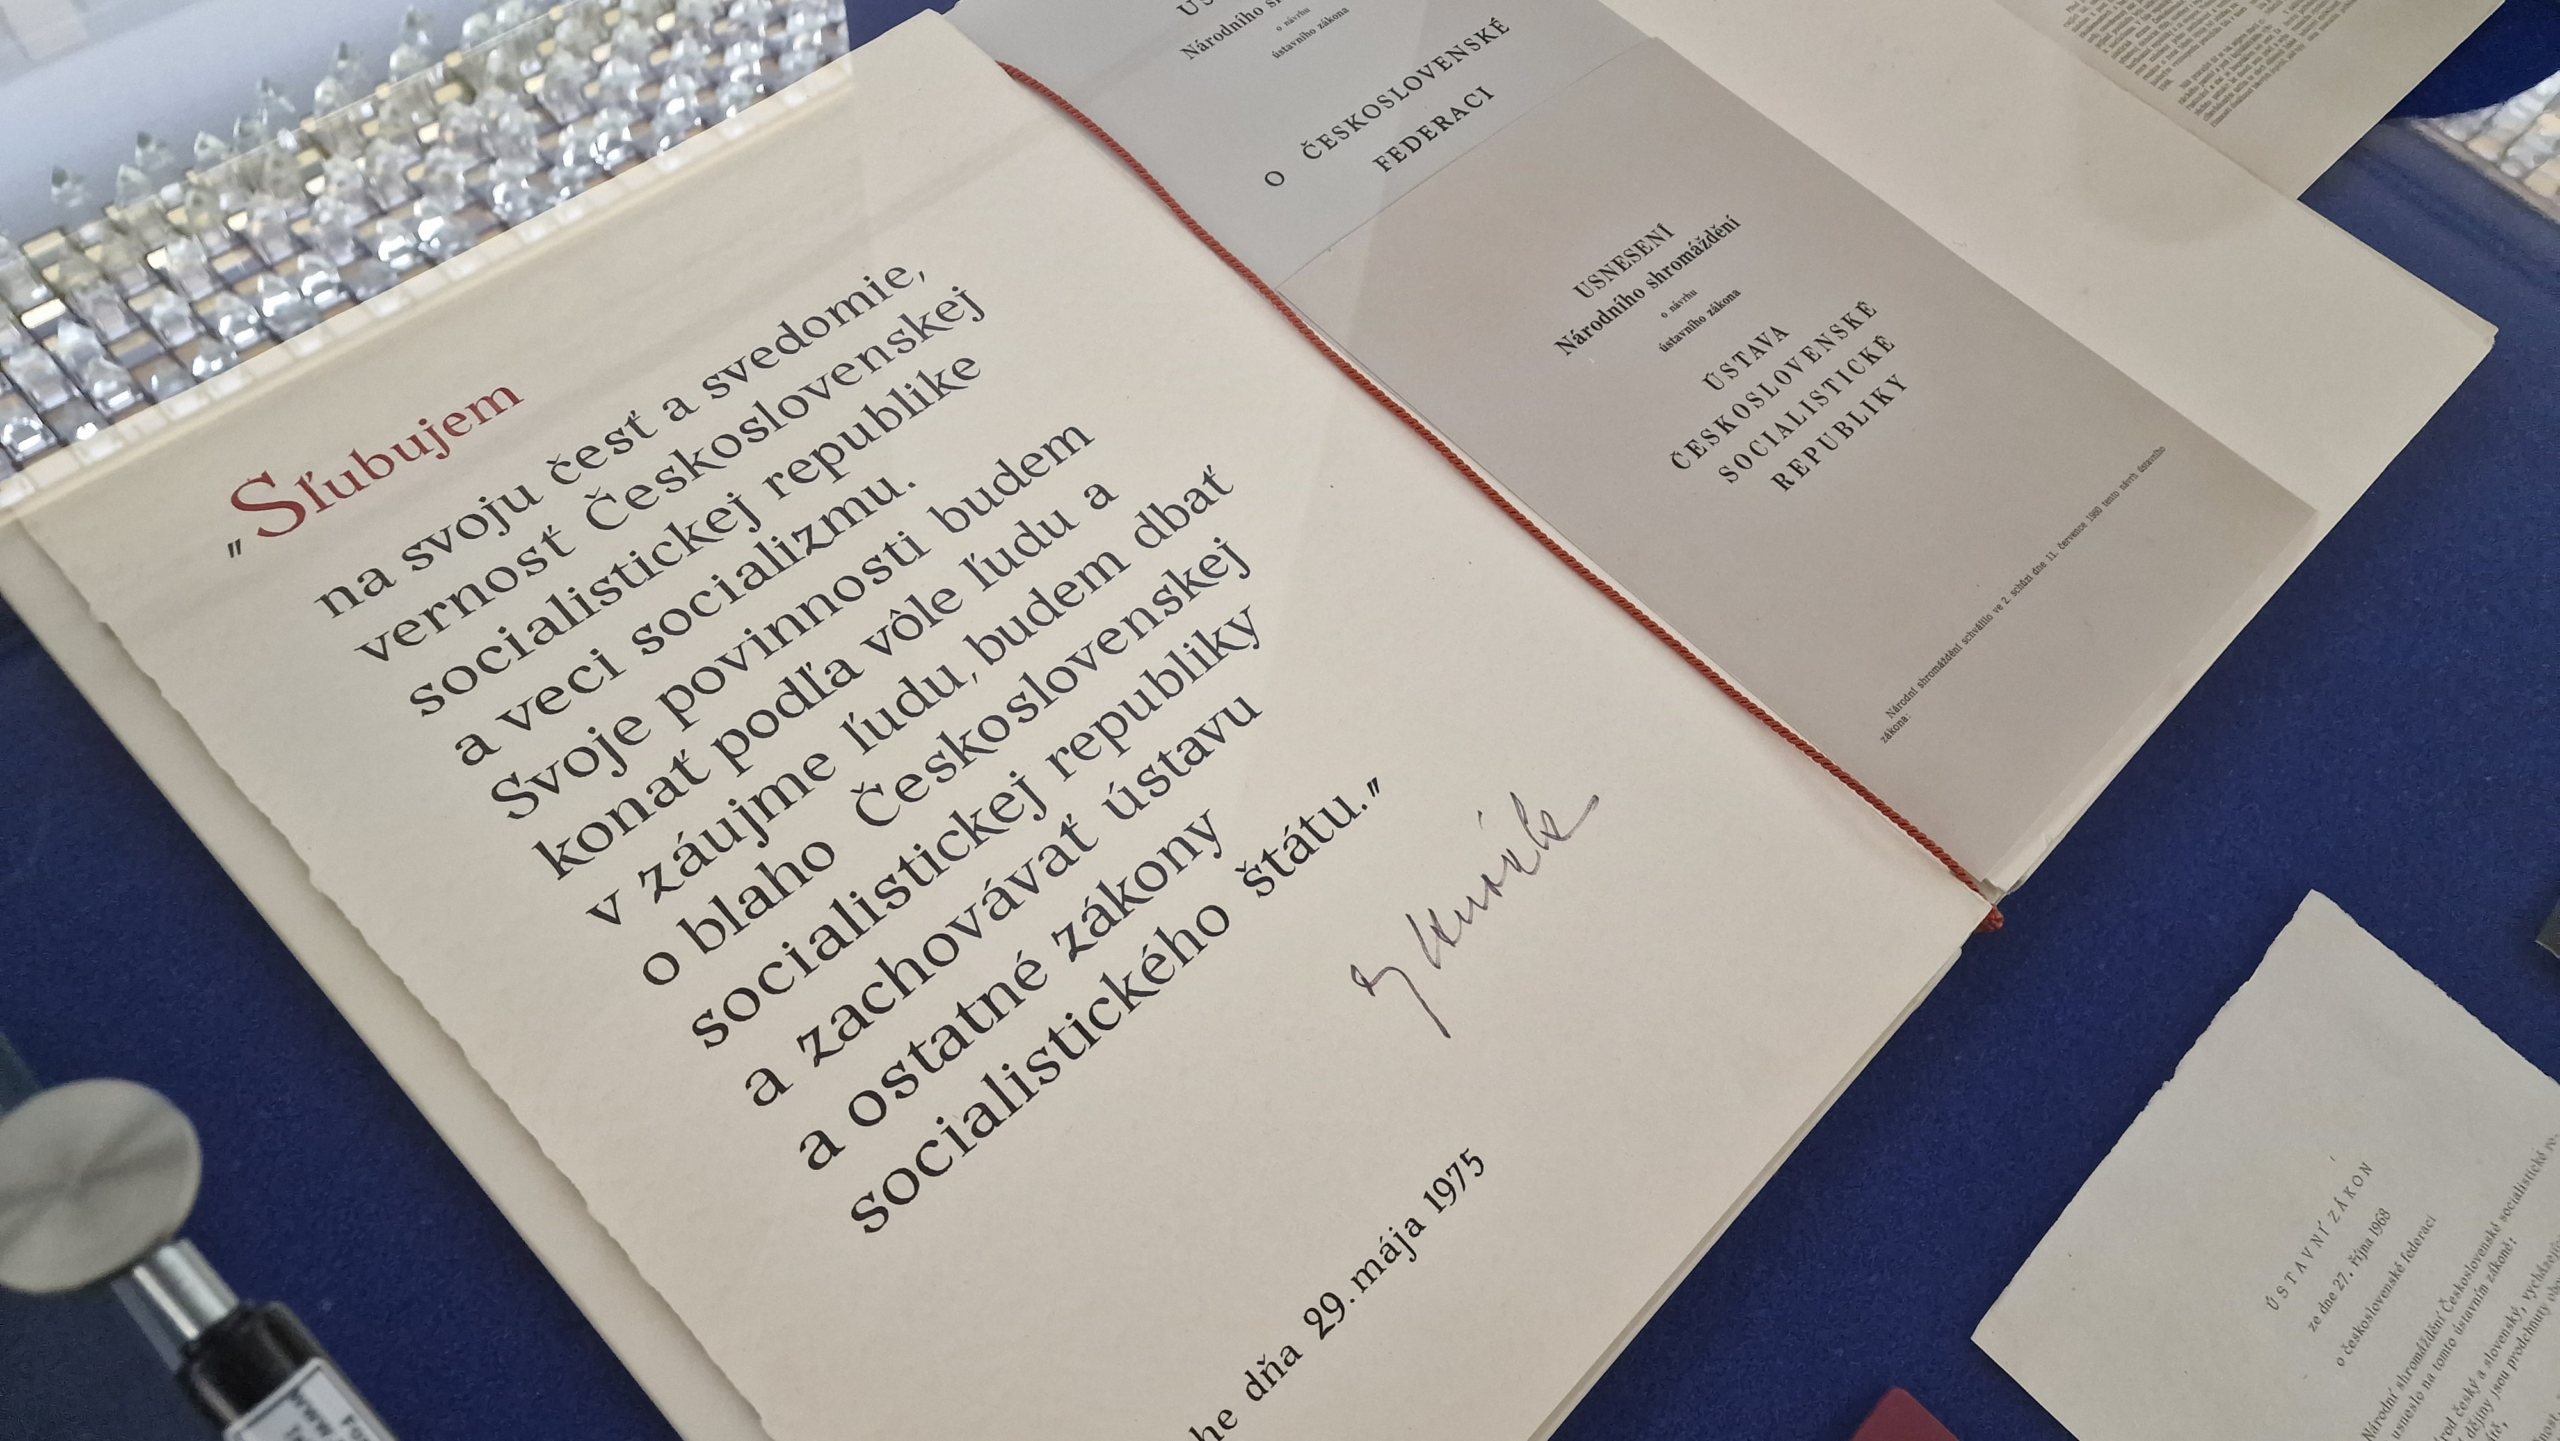 „Sľubujem
na svoju česť a svedomie,
vernosť Československej
socialistickej republike
a veci socializmu.
Svoje povinnosti budem
konať podľa vôle ľudu a
v záujme ľudu, budem dbať
o blaho Československej
socialistickej republiky
a zachovávať ústavu
a ostatné zákony
socialistického štátu.”
he dňa 29. mája 1975
Národního
o návrhu
ústavního zákona
O ČESKOSLOVENSKÉ
FEDERACI
USNESENÍ
Národního shromáždění
o návrhu
ústavního zákona
ÚSTAVA
ČESKOSLOVENSKÉ
SOCIALISTICKÉ
REPUBLIKY
Národní shromáždění schválilo ve 2. schůzi dne 11. července 1960 tento návrh ústavního
zákona:
ÚSTAVNÍ ZÁKON
ze dne 27. října 1968
o československé federaci
Národní shromáždění Československé socialistické re-
usneslo na tomto ústavním zákoně:
český a slovenský, vycházejíc
dějiny jsou prodchnuty